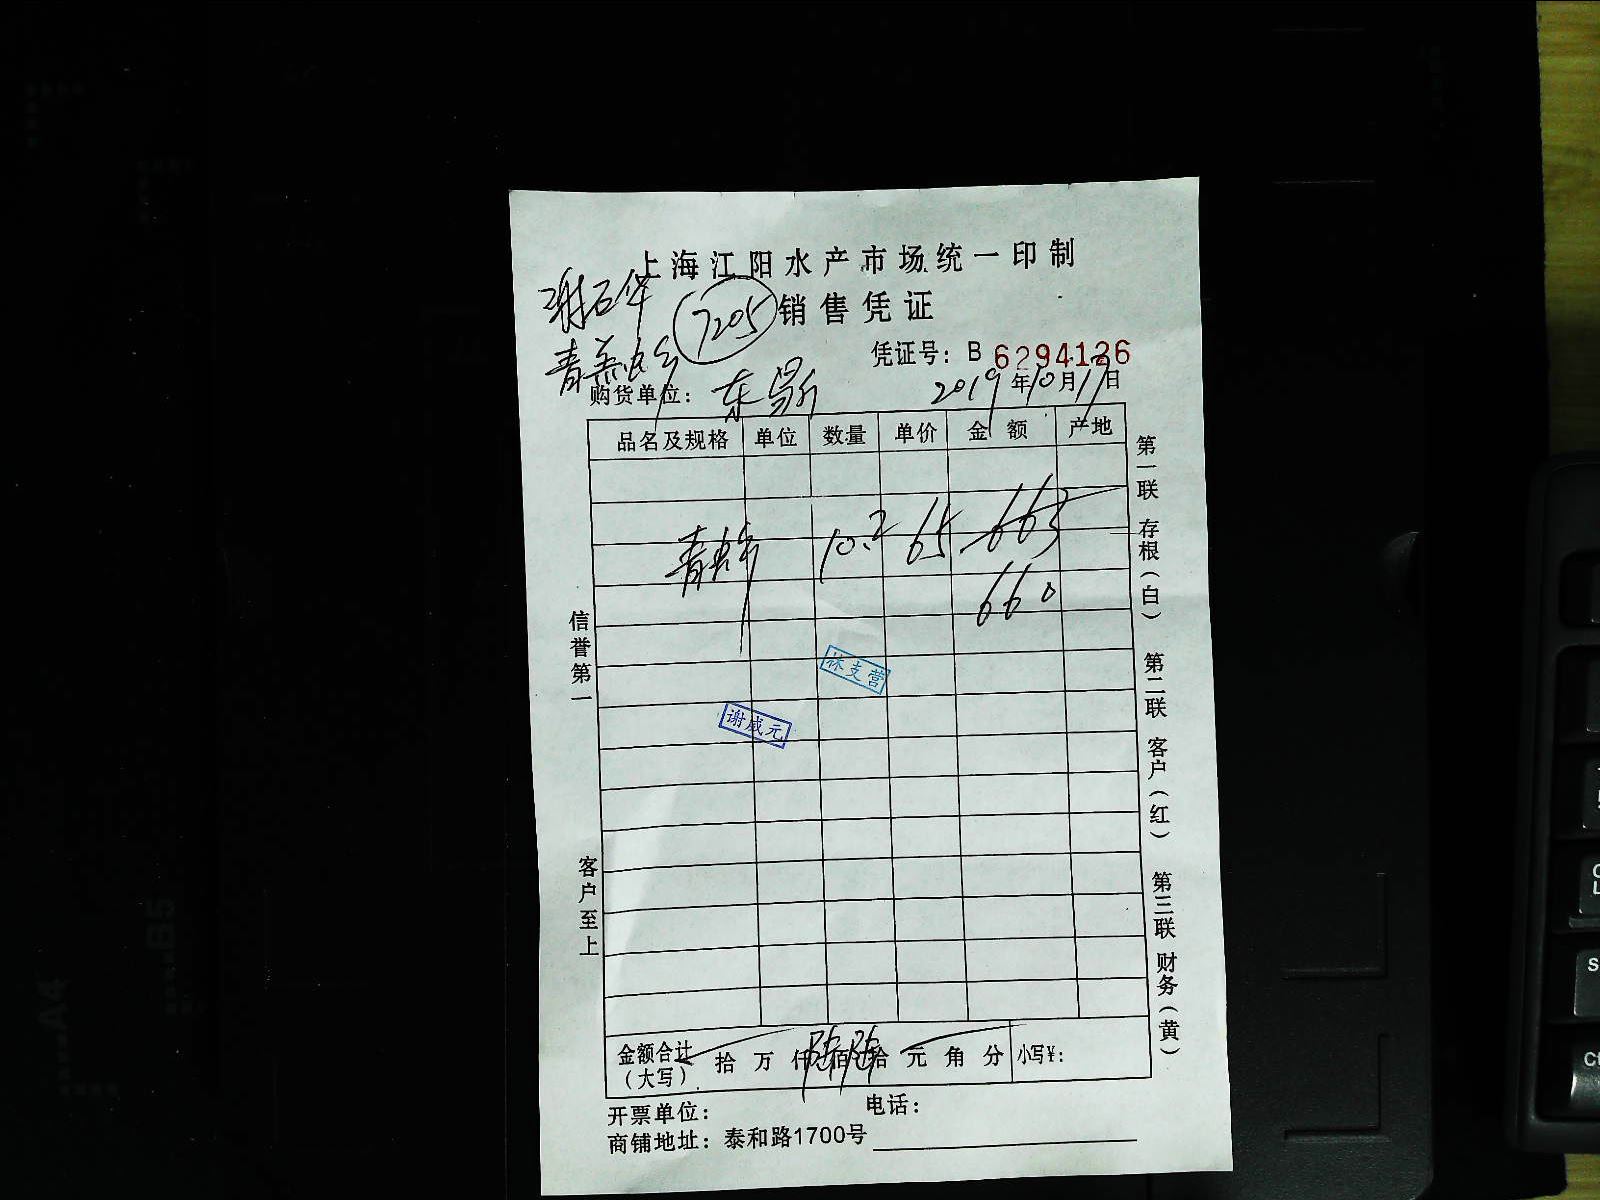 上海江阳水产市场统一印制
谢石华
7205 销售凭证
凭证号：B 6294126
购货单位： 2019年10月17日
品名及规格 单位 数量 单价 金额 产地
65 663
660
林支营
谢威元
信誉第一
客户至上
第一联 存根（白） 第二联 客户（红） 第三联 财务（黄）
金额合计（大写） 拾 万 仟 陆 佰 陆 拾 元 角 分 小写¥：
开票单位： 电话：
商铺地址：泰和路1700号